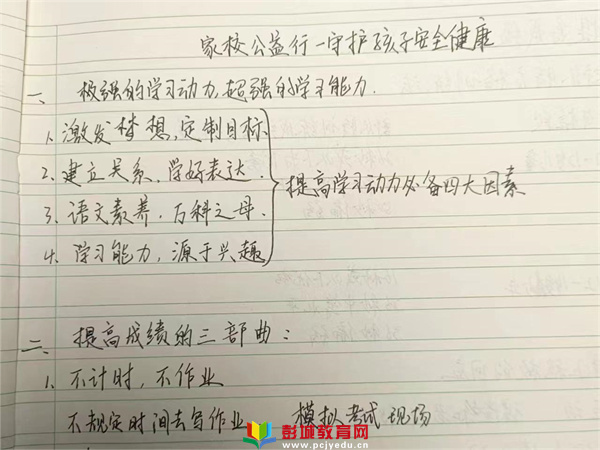 家校公益行一守护孩子安全健康
一、极强的学习动力,超强的学习能力.
1、激发梦想,定制目标
2、建立关系、学好表达.
3、语文素养、万科之母.
4、学习能力,源于兴趣,
提高学习动力必备四大因素
二、提高成绩的三部曲:
1、不计时,不作业
不规定时间去写作业 模拟考试现场
彭城教育网
www.pcjyedu.cn